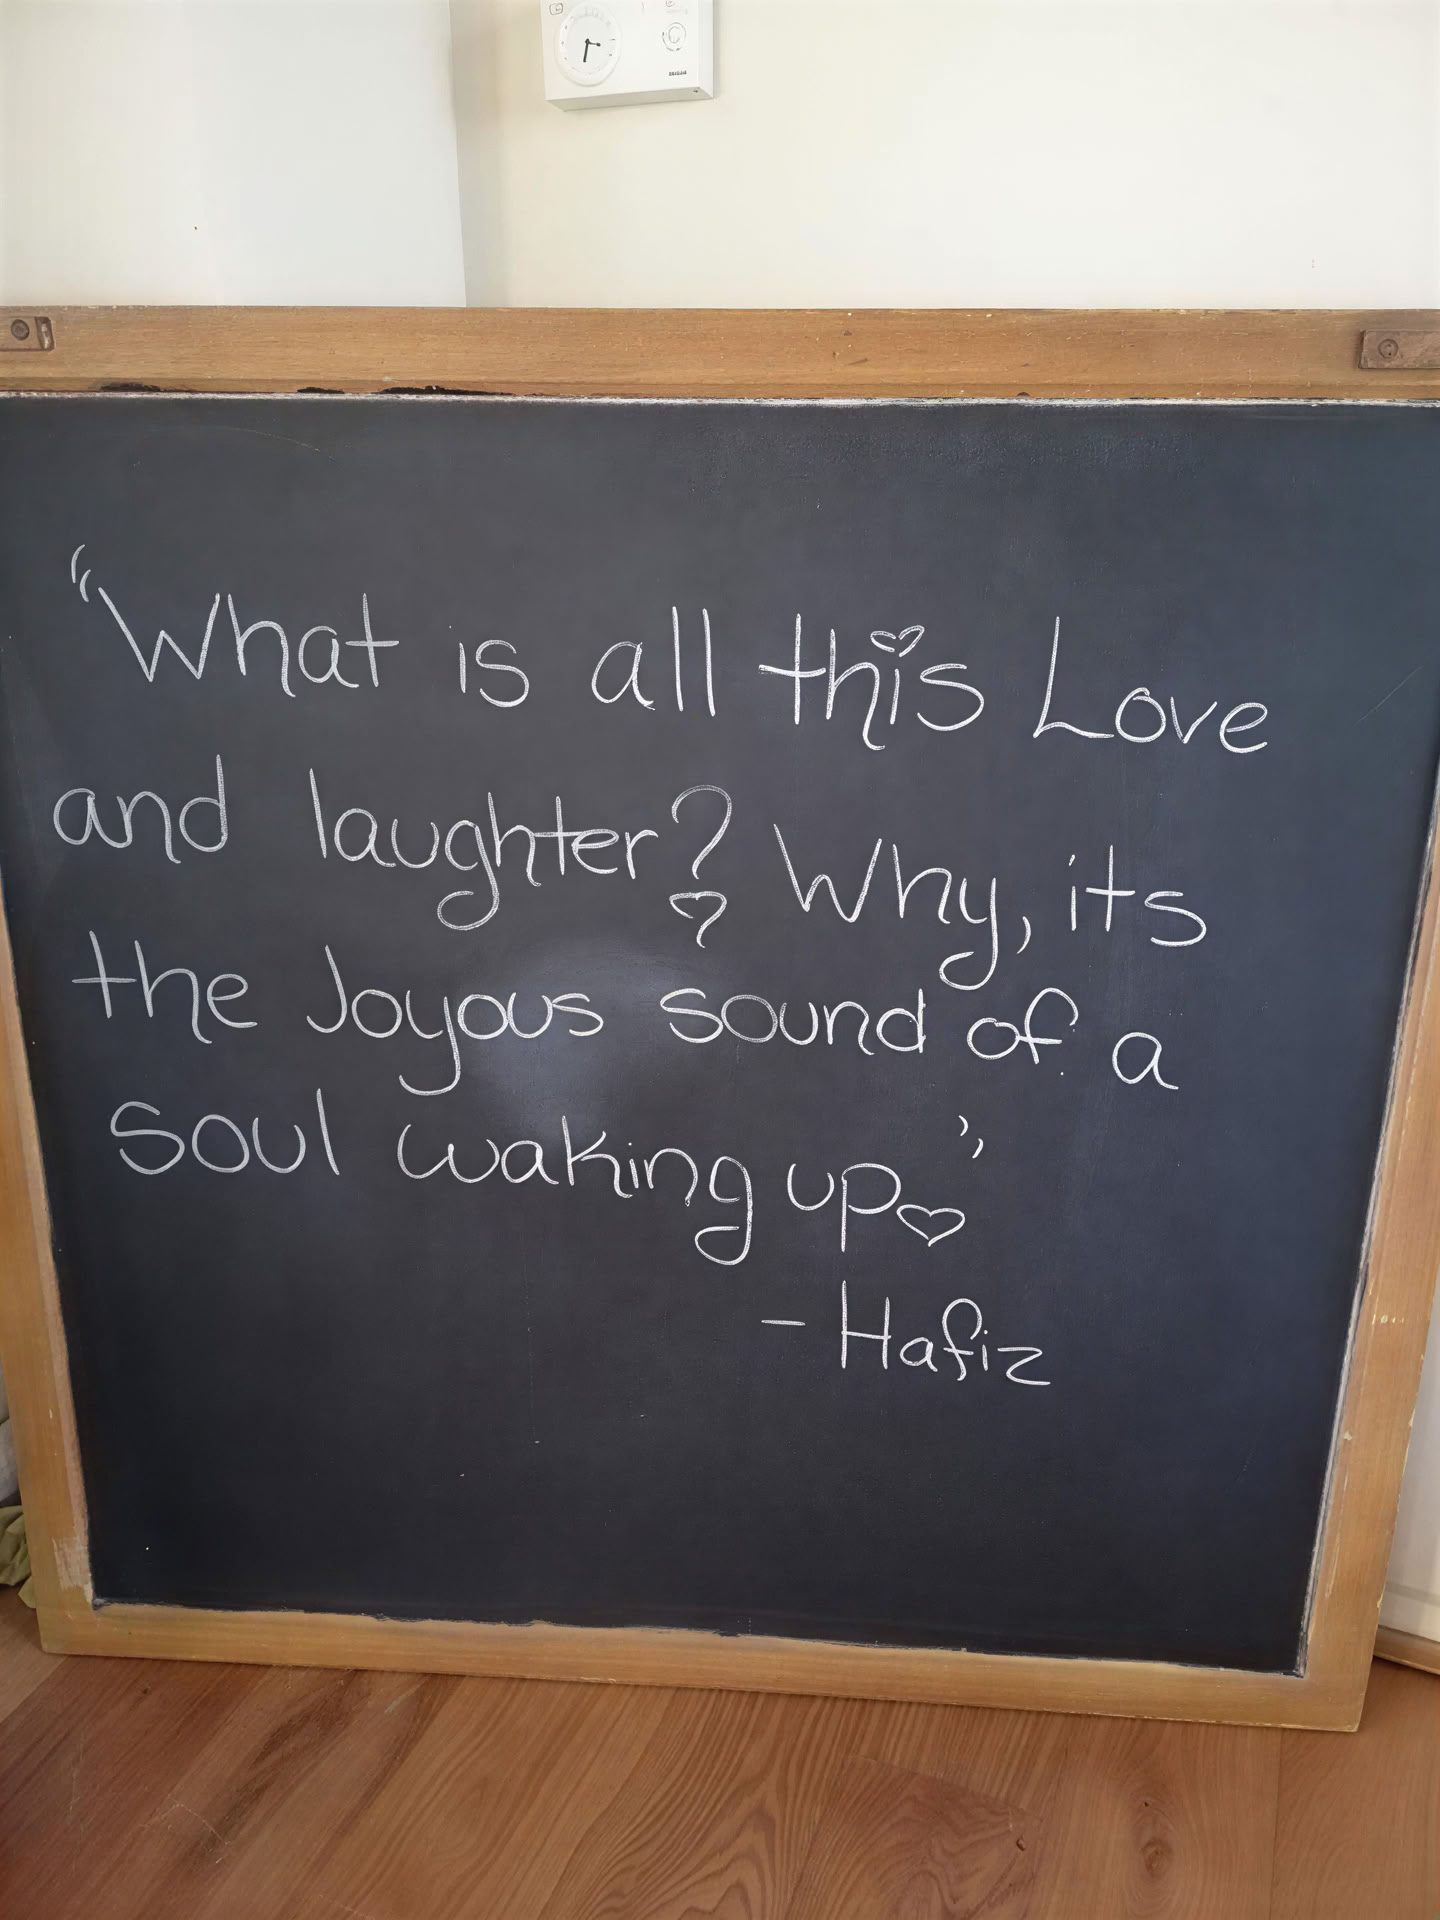 "What is all this Love
and laughter? Why, its
the Joyous sound of a
soul waking up♡"
- Hafiz